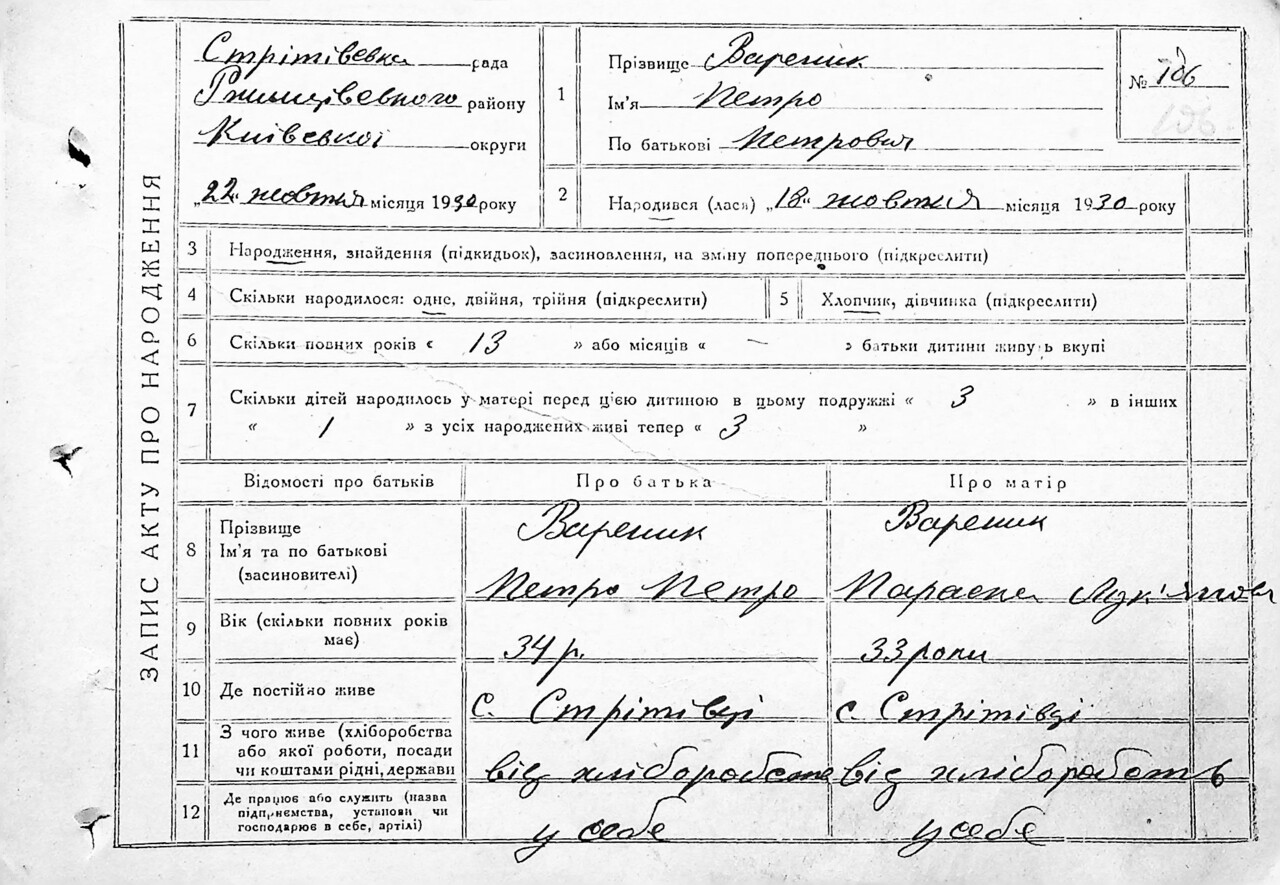 ЗАПИС АКТУ ПРО НАРОДЖЕННЯ
Стрітівська рада
Ржищівського району
Київської округи
„22“ жовтня місяця 1930 року
1 Прізвище Вареник
Ім'я Петро
По батькові Петрович
№ 106
106
2 Народився (лася) „18“ жовтня місяця 1930 року
3 Народження, знайдення (підкидьок), засиновлення, на зміну попереднього (підкреслити)
4 Скільки народилося: одне, двійня, трійня (підкреслити) 5 Хлопчик, дівчинка (підкреслити)
6 Скільки повних років « 13 » або місяців « — » батьки дитини живуть вкупі
7 Скільки дітей народилось у матері перед цією дитиною в цьому подружжі « 3 » в інших
« 1 » з усіх народжених живі тепер « 3 »
Відомості про батьків Про батька Про матір
8 Прізвище Вареник Вареник
Ім'я та по батькові
(засиновителі) Петро Петро Параска Лук'янова
9 Вік (скільки повних років
має) 34 р. 33 роки
10 Де постійно живе с. Стрітівці с. Стрітівці
11 З чого живе (хліборобства
або якої роботи, посади
чи коштами рідні, держави від хліборобства від хліборобств
12 Де працює або служить (назва
підприємства, установи чи
господарює в себе, артілі) у себе у себе